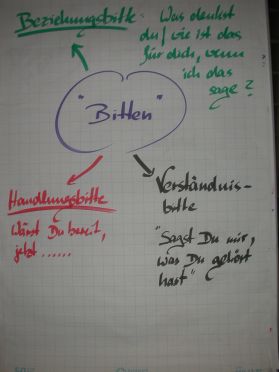 Beziehungsbitte: Was denkst
du / wie ist das
für dich, wenn
ich das
sage?
"Bitten"
Handlungsbitte
Wärst Du bereit,
jetzt ......
Verständnis-
bitte
"Sagst Du mir,
was Du gehört
hast"